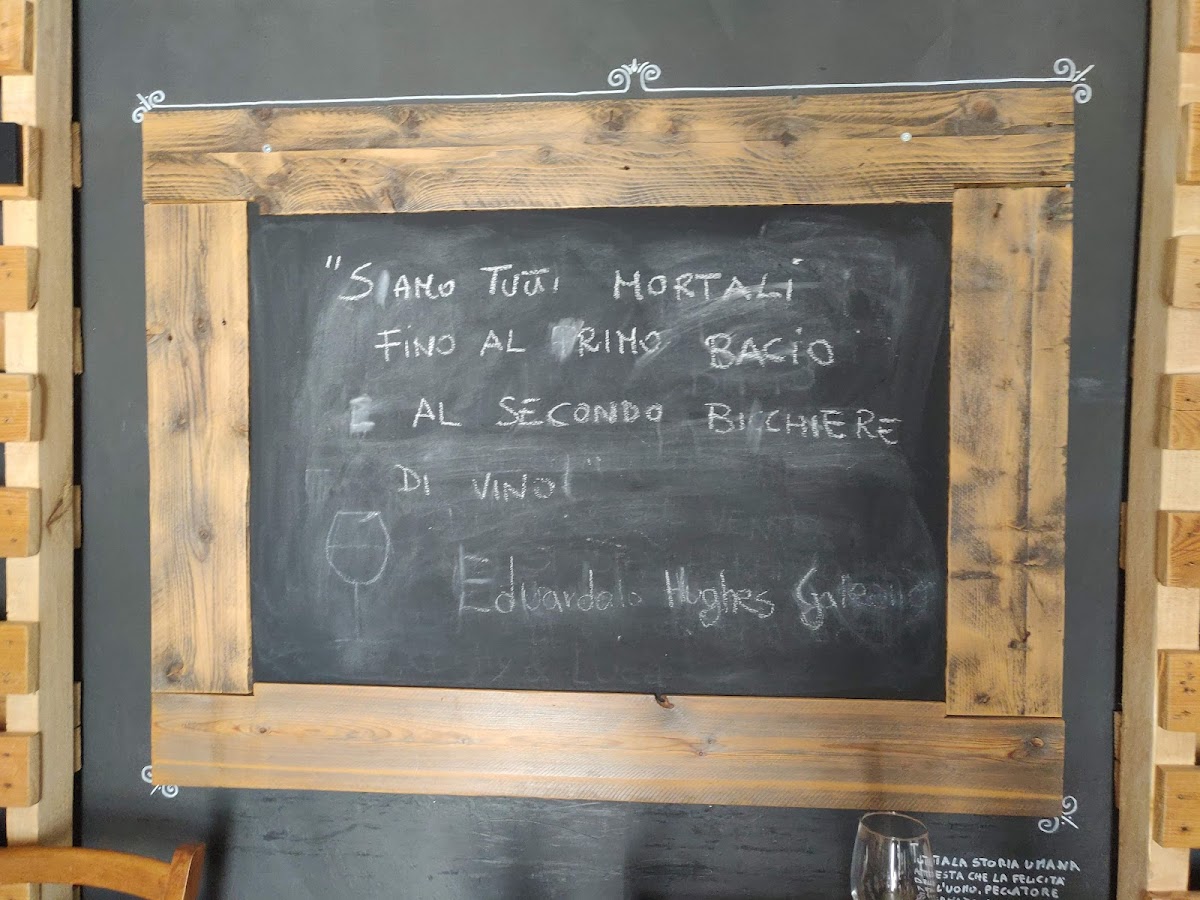 "SIAMO TUTTI MORTALI
FINO AL PRIMO BACIO
E AL SECONDO BICCHIERE
DI VINO"
Eduardo Hughes Galeano
STORIA UMANA
CHE LA FELICITÀ
L'UOMO, PECCATORE